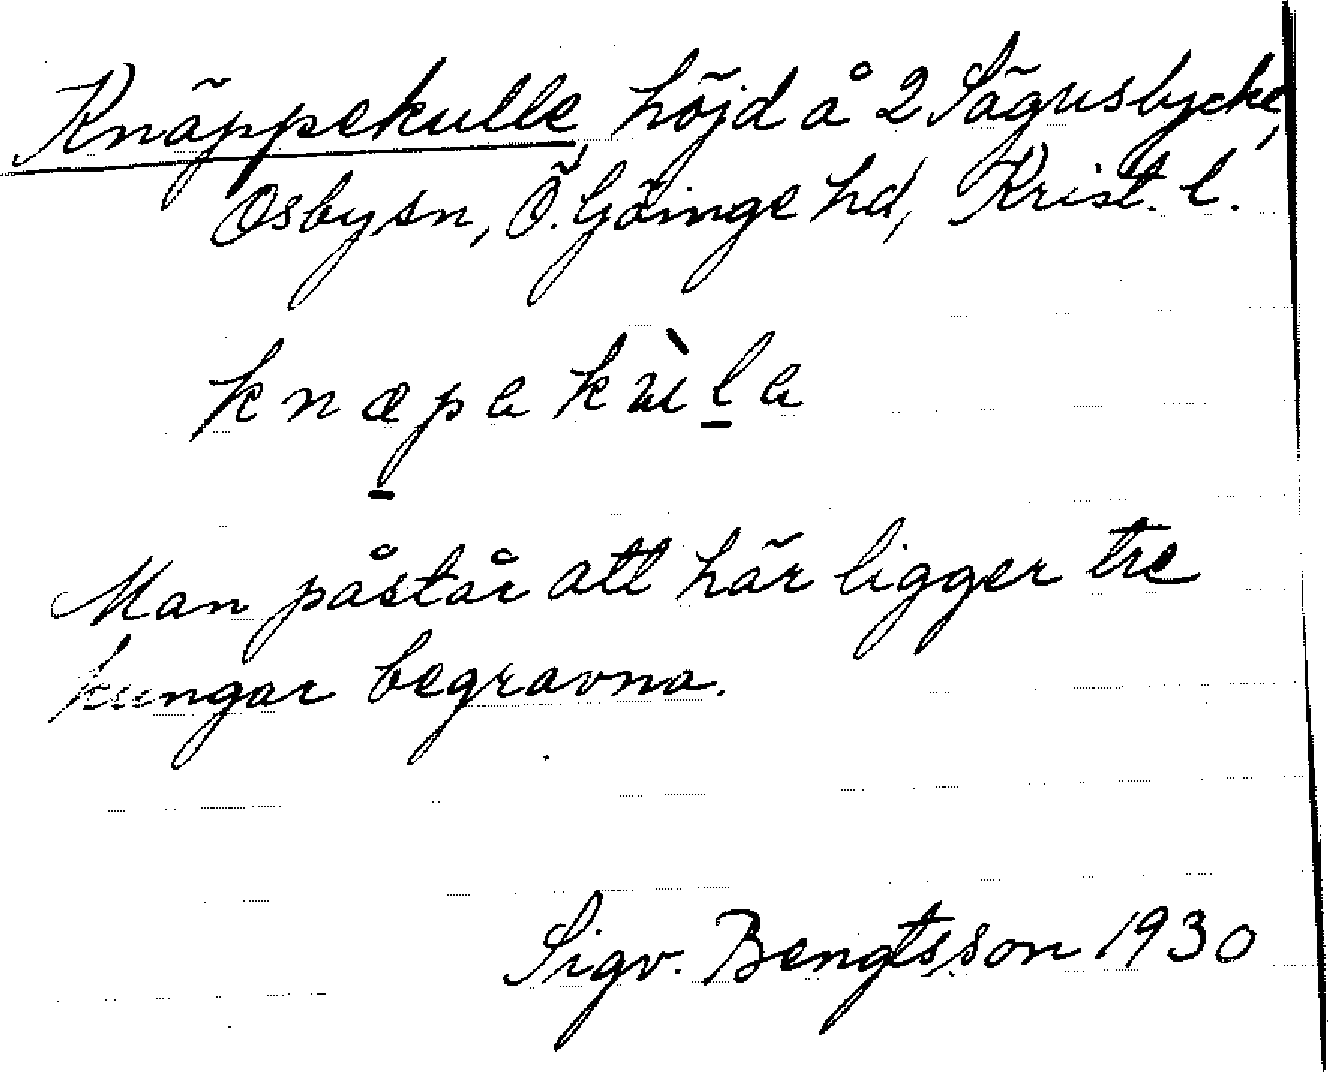 Knäppekulle, höjd å 2 Sågusbycke,
Osby sn, Ö. Göinge hd, Krist. l.
knæpakùla
Man påstår att här ligger tre
kungar begravna.
Sigv. Bengtsson 1930